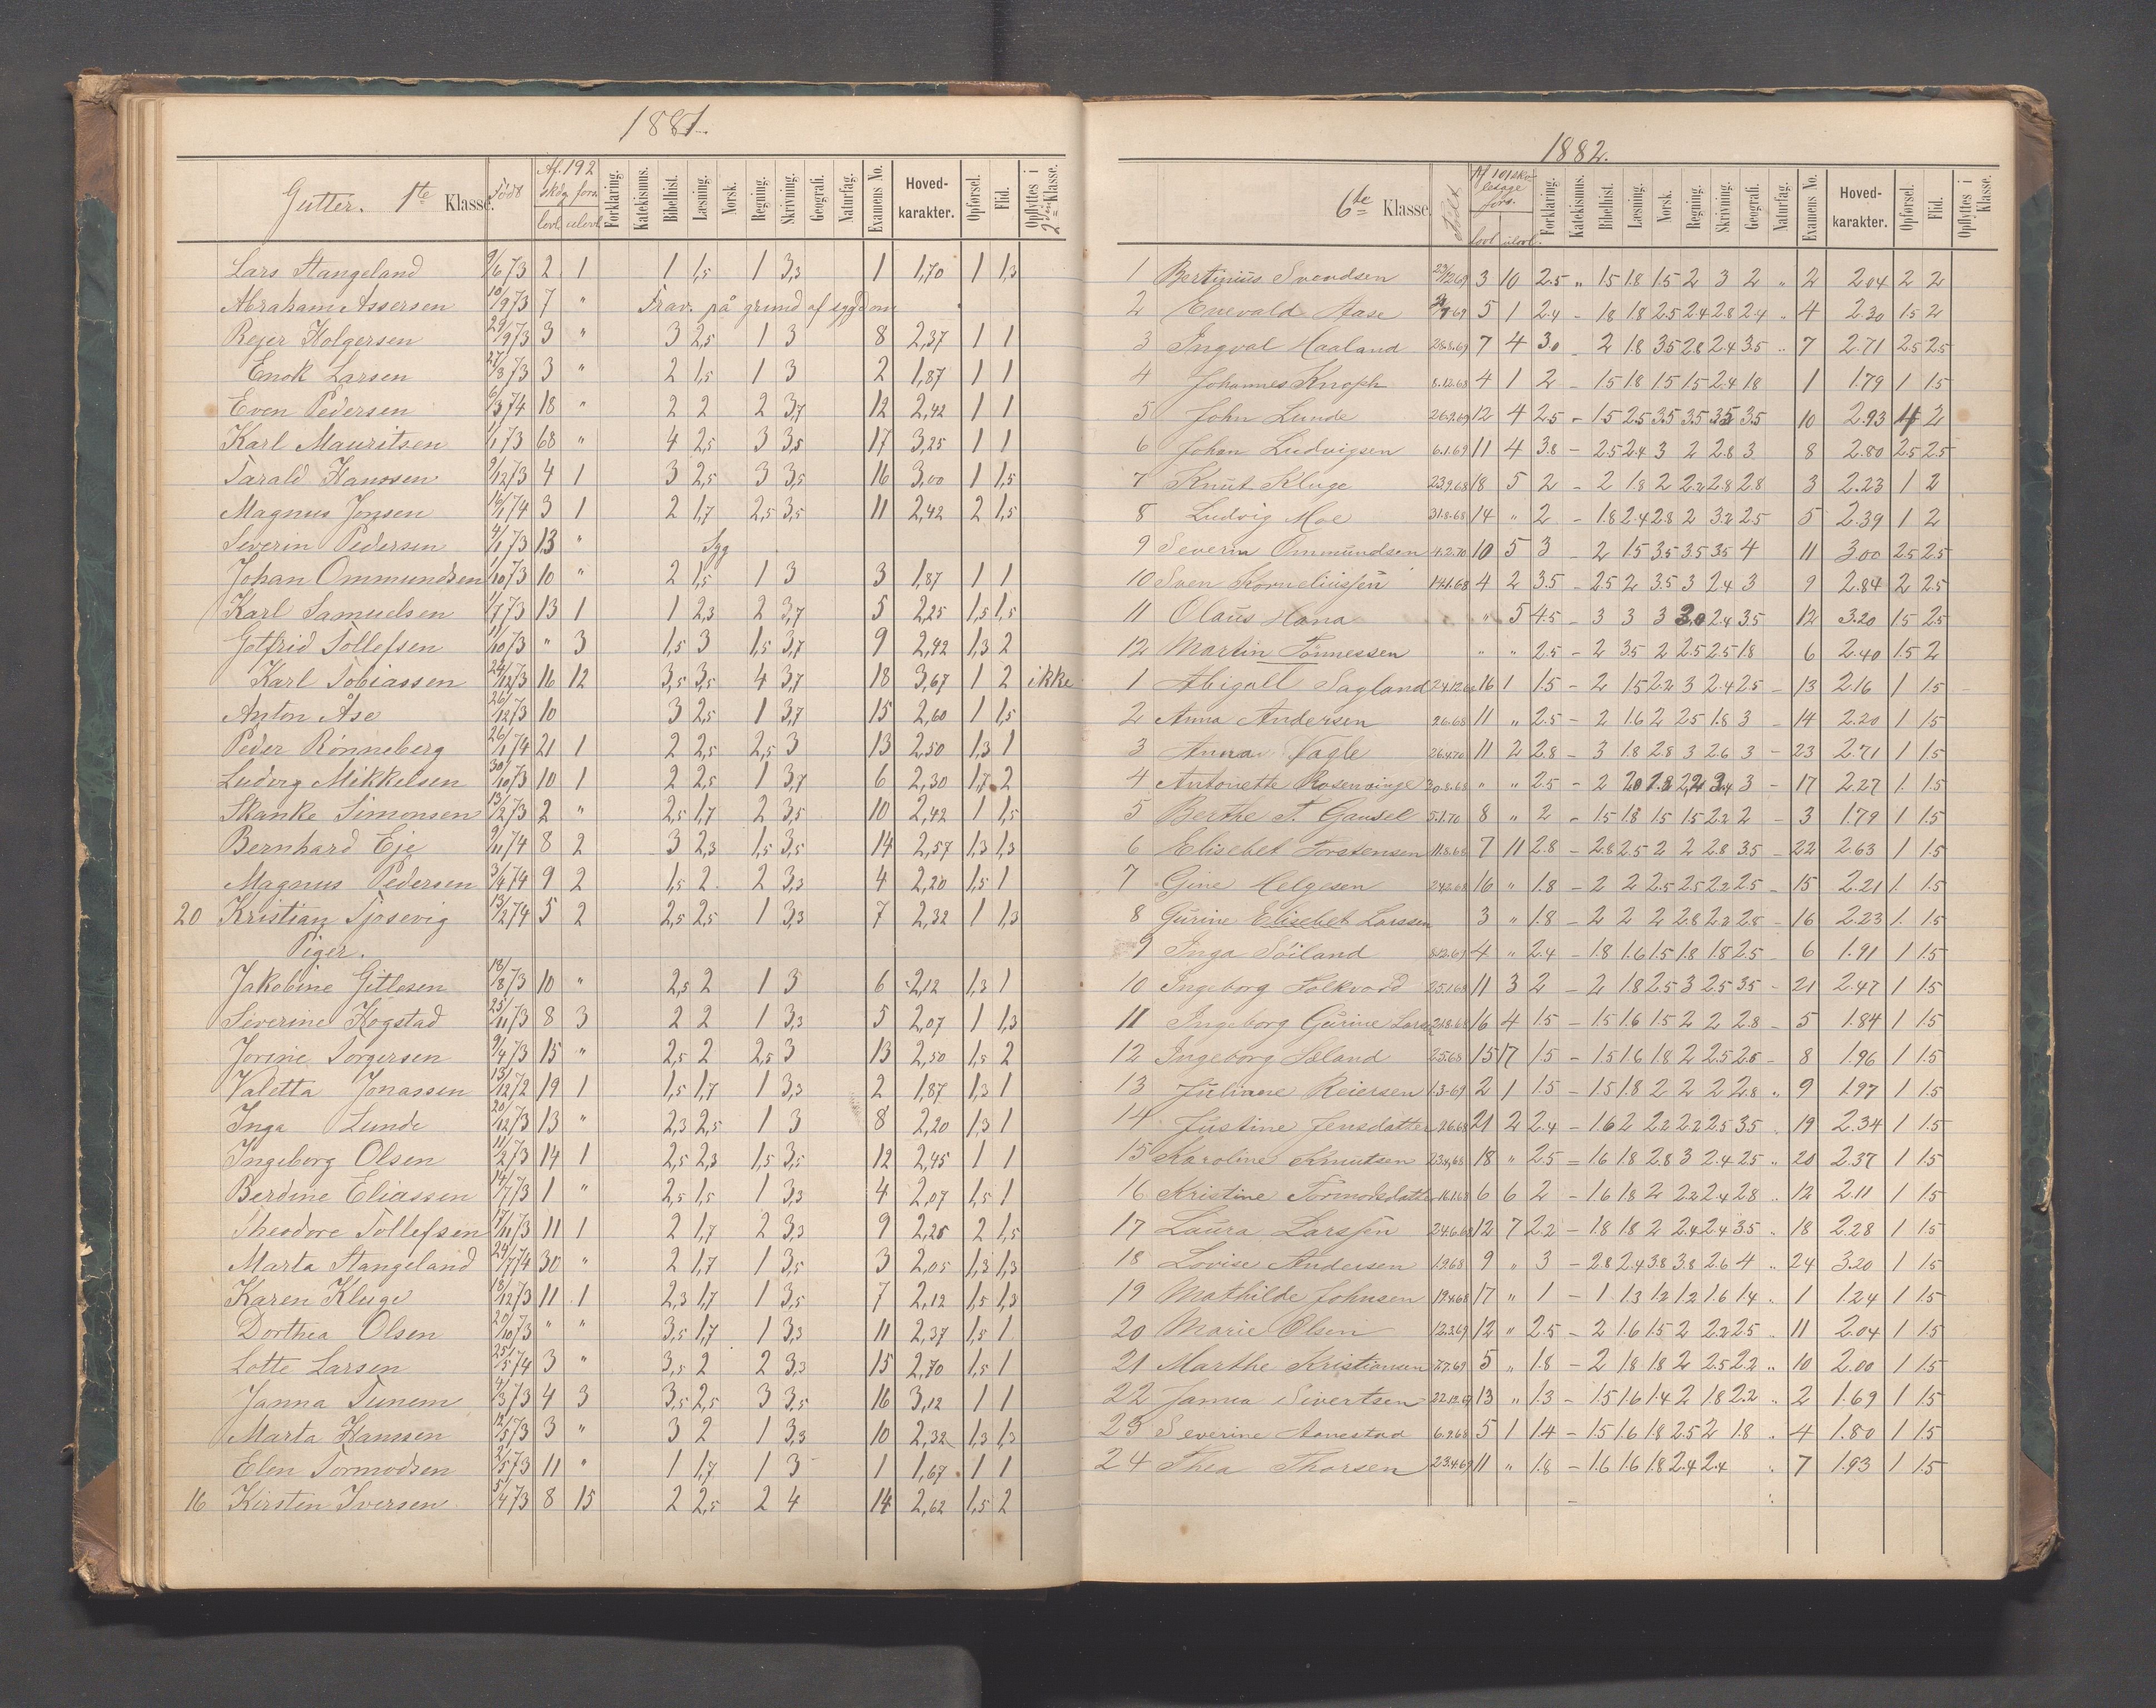 1881.
Gutter. 1te Klasse. Født Af. 192 skdg. fors. lovl. ulovl. Forklaring. Katekismus. Bibelhist. Læsning. Norsk. Regning. Skrivning. Geografi. Naturfag. Examens No. Hoved-karakter. Opførsel. Flid. Opflyttes i 2den Klasse.
Lars Stangeland 9/6 73 2 1 1 1,5 1 3,3 1 1,70 1 1,3
Abraham Assersen 10/9 73 7 " Frav. på grund af sygdom
Rejer Holgersen 29/9 73 3 " 3 2,5 1 3 8 2,37 1 1
Enok Larsen 27/3 73 3 " 2 1,5 1 3 2 1,87 1 1
Even Pedersen 6/3 74 18 " 2 2 2 3,7 12 2,42 1 1
Karl Mauritsen 1/1 73 68 " 4 2,5 3 3,5 17 3,25 1 1
Tarald Hanssen 9/12 73 4 1 3 2,5 3 3,5 16 3,00 1 1,5
Magnus Jonsen 16/1 74 3 1 2 1,7 2,5 3,5 11 2,42 2 1,5
Severin Pedersen 4/1 73 13 " Syg
Johan Ommundsen 1/10 73 10 " 2 1,5 1 3 3 1,87 1 1
Karl Samuelsen 1/7 73 13 1 1 2,3 2 3,7 5 2,25 1,5 1,5
Gotfrid Tollefsen 11/10 73 " 3 1,5 3 1,5 3,7 9 2,42 1,3 2
Karl Tobiassen 24/12 73 16 12 3,5 3,5 4 3,7 18 3,67 1 2 ikke
Anton Ase 26/12 73 10 3 2,5 1 3,7 15 2,60 1 1,5
Peder Rønneberg 26/1 74 21 1 2 2,5 2,5 3 13 2,50 1,3 1
Ludvig Mikkelsen 30/10 73 10 1 2 2,5 1 3,7 6 2,30 1,7 2
Skanke Simonsen 13/2 73 2 " 2,5 1,7 2 3,5 10 2,42 1 1,5
Bernhard Eje 9/11 74 8 2 3 2,3 1,5 3,5 14 2,57 1,3 1,3
Magnus Pedersen 3/4 74 9 2 1,5 2 2 3,3 4 2,20 1,5 1
20 Kristian Tjosevig 13/2 74 5 2 2,5 2,5 1 3,3 7 2,32 1 1,3
Piger.
Jakobine Gitlesen 18/8 73 10 " 2,5 2 1 3 6 2,12 1,3 1
Siverine Hogstad 25/11 73 8 3 2 2 1 3,3 5 2,07 1 1,3
Jorine Torgersen 9/4 73 15 " 2,5 2 2,5 3 13 2,50 1,5 2
Valetta Jonassen 13/12 72 19 1 1,5 1,7 1 3,3 2 1,87 1,3 1
Inga Lunde 20/12 73 13 " 2,3 2,5 1 3 8 2,20 1,3 1
Ingeborg Olsen 11/2 73 14 1 2,5 2,3 1,5 3,5 12 2,45 1 1
Berdine Eliassen 14/7 73 1 " 2,5 1,5 1 3,3 4 2,07 1,5 1
Theodore Tollefsen 17/11 73 11 1 2 1,7 2 3,3 9 2,25 2 1,5
Marta Stangeland 29/7 74 30 " 2 1,7 1 3,5 3 2,05 1,3 1,3
Karen Kluge 13/12 73 11 1 2,3 1,7 1 3,5 7 2,12 1,5 1,3
Dorthea Olsen 20/10 73 " " 3,5 1,7 1 3,3 11 2,37 1,5 1
Lotte Larsen 25/5 74 3 " 3,5 2 2 3,3 15 2,70 1,5 1
Janna Tunem 4/3 73 4 3 3,5 2,5 3 3,5 16 3,12 1 1
Marta Hanssen 12/5 73 3 " 3 2 1 3,3 10 2,32 1,3 1,3
Elen Tormodsen 2/5 73 11 " 1 1,7 1 3 1 1,67 1 1
16 Kirsten Iversen 5/4 73 8 15 2 2,5 2 4 14 2,62 1,5 2
1882.
6te Klasse. Født Af 101 skoledage fors. lovl ulovl. Forklaring. Katekismus. Bibelhist. Læsning. Norsk. Regning. Skrivning. Geografi. Naturfag. Examens No. Hoved-karakter. Opførsel. Flid. Opflyttes i Klasse.
1 Bertinius Svendsen 3 10 2.5 " 1.5 1.8 1.5 2 3 2 " 2 2.04 2 2
2 Enevald Aase 5 1 2.4 - 1.8 1.8 2.5 2.4 2.8 2.4 " 4 2.30 1.5 2
3 Ingval Haaland 28.8.69 7 4 3.0 - 2 1.8 3.5 2.8 2.4 3.5 " 7 2.71 2.5 2.5
4 Johannes Knoph 8.12.68 4 1 2 - 1.5 1.8 1.5 1.5 2.4 1.8 1 1.79 1 1.5
5 John Lunde 26.9.69 12 4 2.5 - 1.5 2.5 3.5 3.5 3.5 3.5 10 2.93 2
6 Johan Ludvigsen 6.1.69 11 4 3.8 - 2.5 2.4 3 2 2.8 3 8 2.80 2.5 2.5
7 Knut Kluge 23.9.68 18 5 2 - 2 1.8 2 2.2 2.8 2.8 3 2.23 1 2
8 Ludvig Moe 31.8.68 14 " 2 - 1.8 2.4 2.8 2 3.2 2.5 5 2.39 1 2
9 Severin Ommundsen 4.2.70 10 5 3 - 2 1.5 3.5 3.5 3.5 4 11 3.00 2.5 2.5
10 Sven Korneliussen 14.1.68 4 2 3.5 - 2.5 2 3.5 3 2.4 3 9 2.84 2 2.5
11 Olaus Hana " 5 4.5 - 3 3 3 3.0 2.4 3.5 12 3.20 1.5 2.5
12 Martin Tønnessen " " 2.5 - 2 3.5 2 2.5 2.5 1.8 6 2.40 1.5 2
1 Abigall Sagland 24.12.68 16 1 1.5 - 2 1.5 2.2 3 2.4 2.5 - 13 2.16 1 1.5 -
2 Anna Andersen 2.6.68 11 " 2.5 - 2 1.6 2 2.5 1.8 3 - 14 2.20 1 1.5
3 Anna Vagle 26.4.70 11 2 2.8 - 3 1.8 2.8 3 2.6 3 - 23 2.71 1 1.5
4 Antonette Rosenvinge 30.8.68 " " 2.5 - 2 2.0 1.8 2.2 3.4 3 - 17 2.27 1 1.5
5 Berthe T. Gausel 5.1.70 8 " 2 - 1.5 1.8 1.5 1.5 2.2 2 - 3 1.79 1 1.5
6 Elisebet Torstensen 11.8.68 7 11 2.8 - 2.8 2.5 2 2 2.8 3.5 - 22 2.63 1 1.5
7 Gine Helgesen 27.2.68 16 " 1.8 - 2 2 2.5 2.5 2.2 2.5 - 15 2.21 1 1.5
8 Gurine Elisebet Larssen 3 " 1.8 - 2 2 2 2.8 2.2 2.8 - 16 2.23 1 1.5
9 Inga Søiland 8.12.67 4 " 2.4 - 1.8 1.6 1.5 1.8 1.8 2.5 - 6 1.91 1 1.5
10 Ingeborg Folkvord 25.1.68 11 3 2 - 2 1.8 2.5 3 2.5 3.5 - 21 2.47 1 1.5
11 Ingeborg Gurine 21.8.68 16 4 1.5 - 1.5 1.6 1.5 2 2 2.8 - 5 1.84 1 1.5
12 Ingeborg Sæland 2.5.68 15 17 1.5 - 1.5 1.6 1.8 2 2.5 2.5 - 8 1.96 1 1.5
13 Juliane Reiersen 1.3.69 2 1 1.5 - 1.5 1.8 2 2 2 2.8 " 9 1.97 1 1.5
14 Justine Jensdatter 2.6.68 21 2 2.4 - 1.6 2 2.2 2.2 2.5 3.5 19 2.34 1 1.5
15 Karoline Knutsen 23.8.68 18 " 2.5 = 1.6 1.8 2.8 3 2.4 2.5 " 20 2.37 1 1.5
16 Kristine Tormodsdatter 16.1.68 6 6 2 - 1.6 1.8 2 2.2 2.4 2.8 " 12 2.11 1 1.5
17 Laura Larssen 24.6.68 12 7 2.2 - 1.8 1.8 2 2.4 2.4 3.5 " 18 2.28 1 1.5
18 Lovise Andersen 1.9.68 9 " 3 - 2.8 2.4 3.8 3.8 2.6 4 " 24 3.20 1 1.5
19 Mathilde Johnsen 19.4.68 17 " 1 - 1 1.3 1.2 1.2 1.6 1.4 " 1 1.24 1 1.5
20 Marie Olsen 12.3.69 12 " 2.5 - 2 1.6 1.5 2 2.2 2.5 " 11 2.04 1 1.5
21 Marthe Kristiansen 7.7.69 5 " 1.8 - 2 1.8 1.8 2 2.5 2.2 " 10 2.00 1 1.5
22 Janna Sivertsen 22.12.67 13 " 1.3 - 1.5 1.6 1.4 2 1.8 2.2 " 2 1.69 1 1.5
23 Severine Aanestad 6.9.68 5 1 1.4 - 1.5 1.6 1.8 2.5 2 1.8 " 4 1.80 1 1.5
24 Thea Thorsen 23.4.69 11 " 1.8 - 1.6 1.6 1.8 2.4 2.4 " 7 1.93 1 1.5